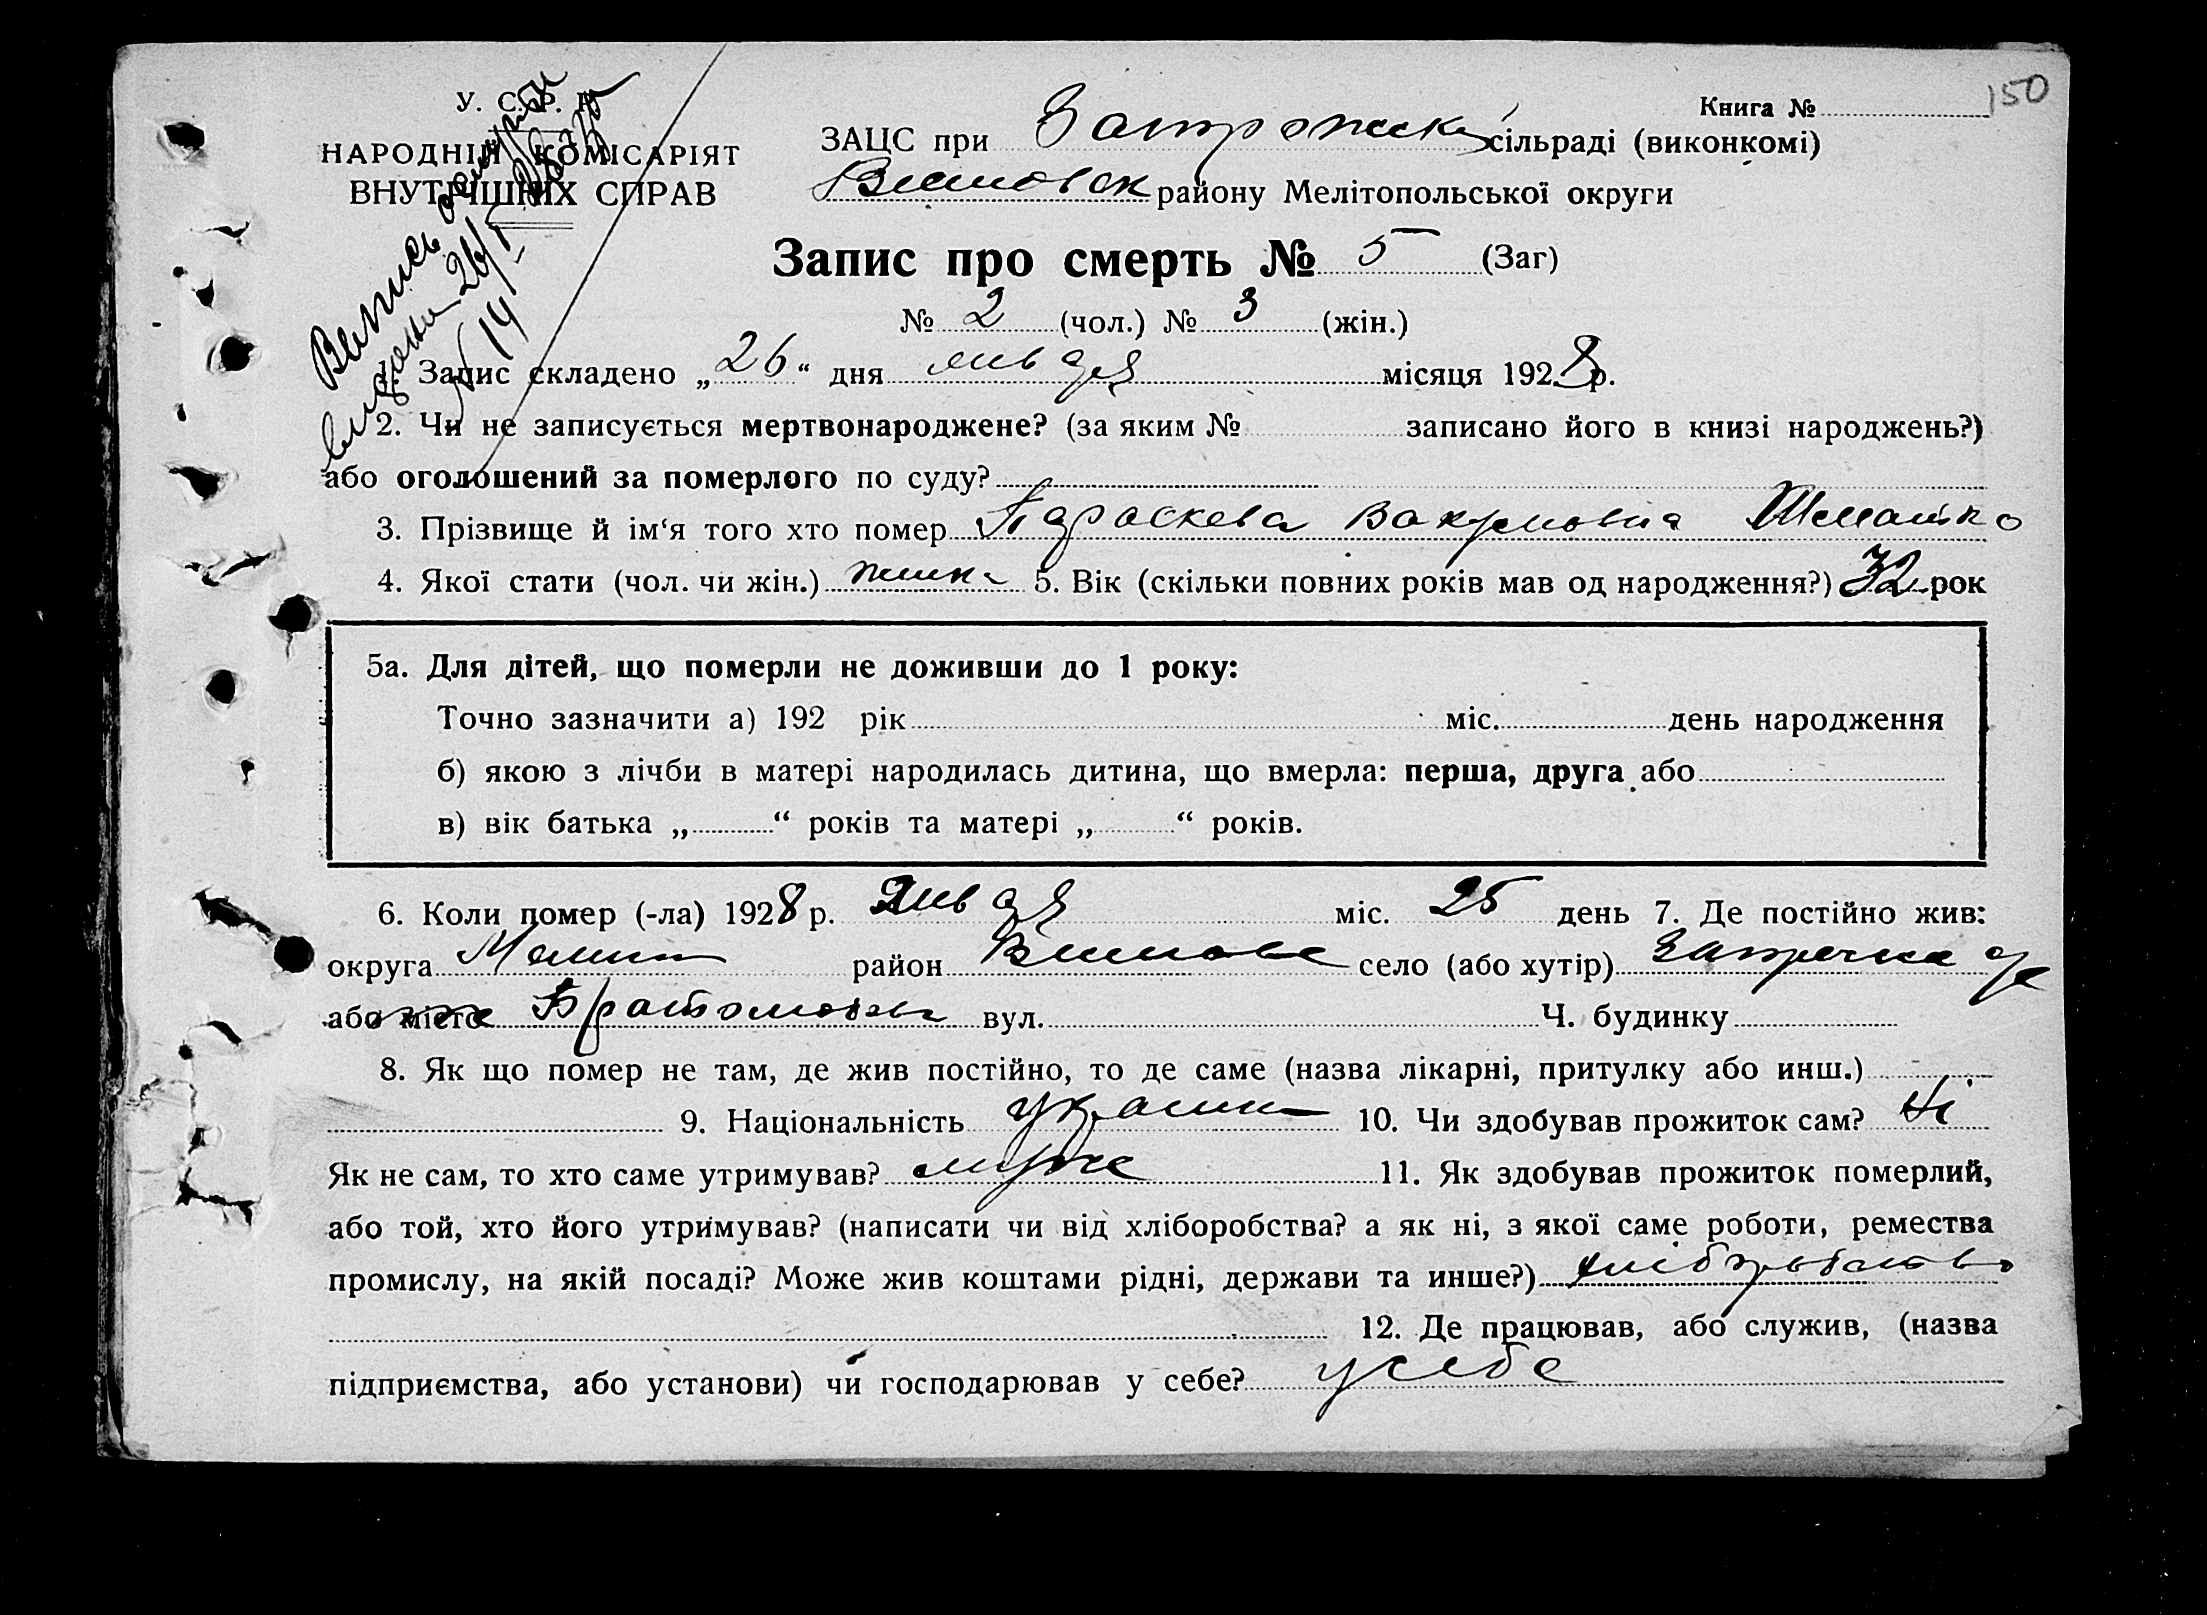 150
У. С. Р. Р.
Книга №
НАРОДНІЙ КОМІСАРІЯТ
ВНУТРІШНІХ СПРАВ
ЗАЦС при сільраді (виконкомі)
району Мелітопольської округи
Выпись о смерти
выдана 26/I
№ 14
Запис про смерть № 5 (Заг)
№ 2 (чол.) № 3 (жін.)
1. Запис складено „26“ дня января місяця 1928 р.
2. Чи не записується мертвонароджене? (за яким № записано його в книзі народжень?)
або оголошений за померлого по суду?
3. Прізвище й ім‘я того хто помер Параскева
4. Якої стати (чол. чи жін.) 5. Вік (скільки повних років мав од народження?) 32 рок
5а. Для дітей, що померли не доживши до 1 року:
Точно зазначити а) 192 рік міс. день народження
б) якою з лічби в матері народилась дитина, що вмерла: перша, друга або
в) вік батька „ “ років та матері „ “ років.
6. Коли помер (-ла) 1928 р. Января міс. 25 день 7. Де постійно жив:
округа Мелит район село (або хутір)
або місто вул. Ч. будинку
8. Як що помер не там, де жив постійно, то де саме (назва лікарні, притулку або инш.)
9. Національність 10. Чи здобував прожиток сам? Ні
Як не сам, то хто саме утримував? 11. Як здобував прожиток померлий,
або той, хто його утримував? (написати чи від хліборобства? а як ні, з якої саме роботи, ремества
промислу, на якій посаді? Може жив коштами рідні, держави та инше?) хліборобство
12. Де працював, або служив, (назва
підприємства, або установи) чи господарював у себе? у себе